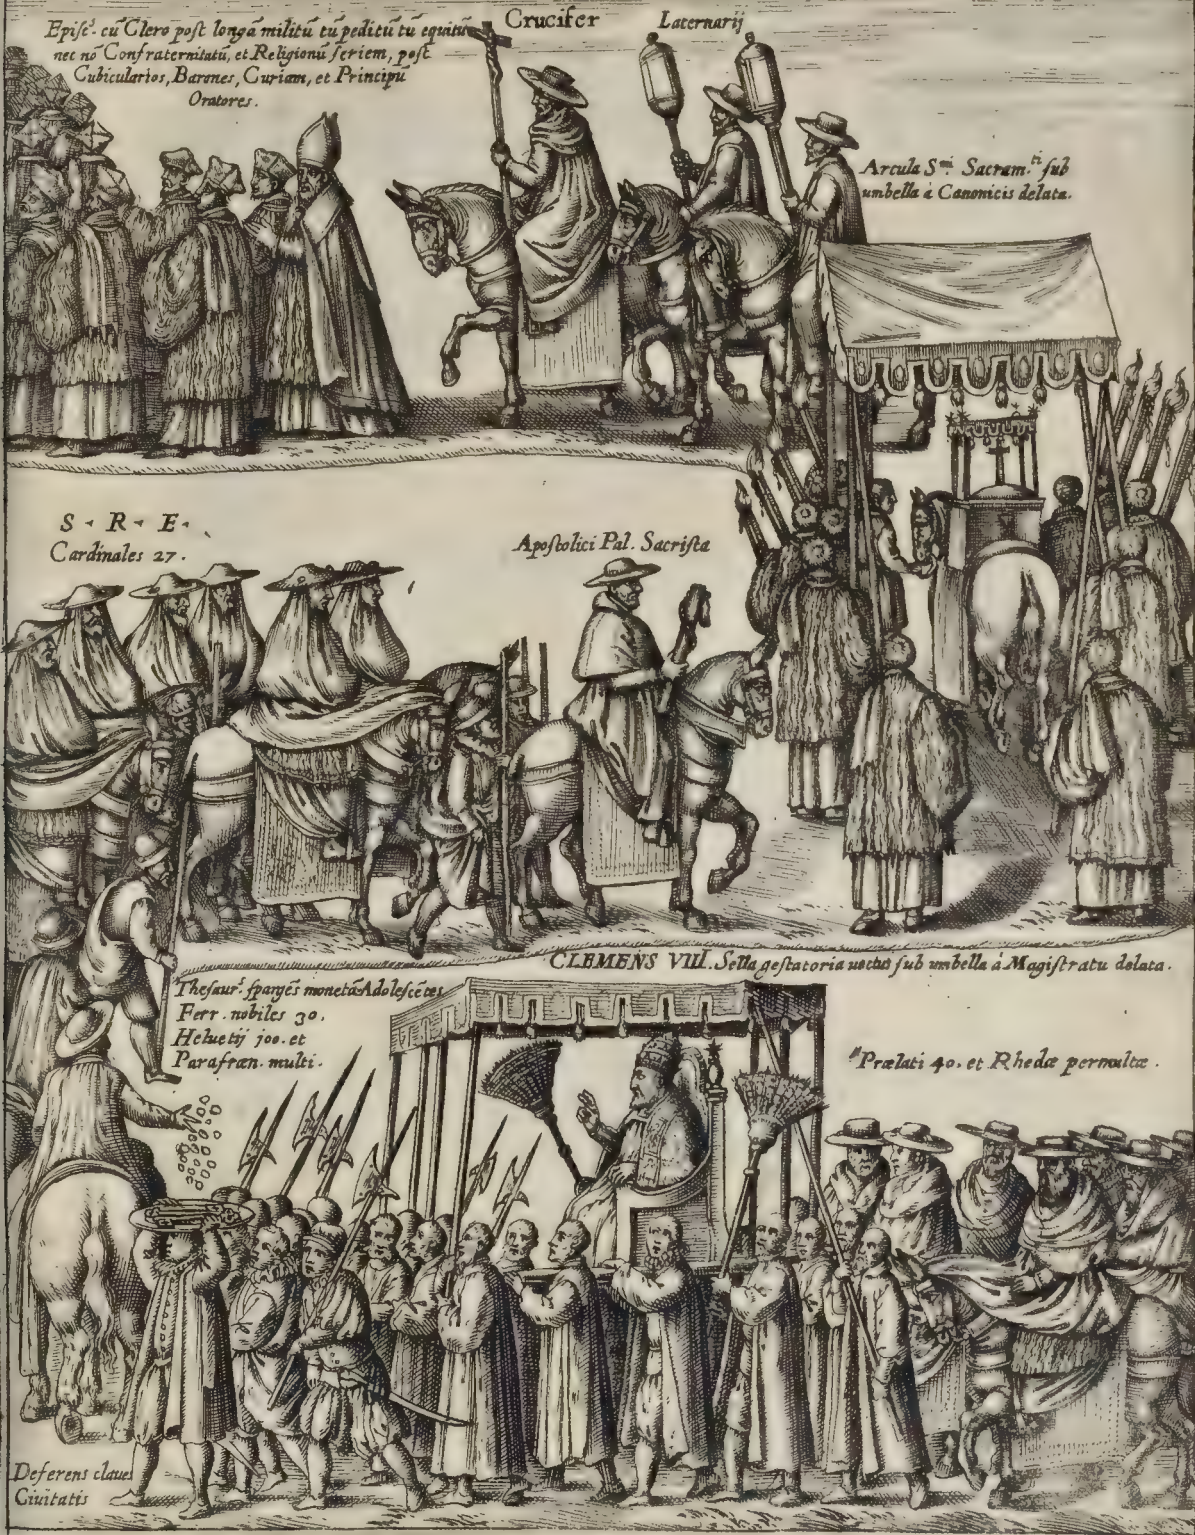 Episc.^s cū Clero post longā militū tū peditū tū equitū
nec nō Confraternitatū, et Religionū seriem, post
Cubicularios, Barones, Curiam, et Principū
Oratores.
Crucifer
Laternarij
Arcula S^mi Sacram.^ti sub
umbella à Canonicis delata.
S. R. E.
Cardinales 27.
Apostolici Pal. Sacrista
CLEMENS VIII. Sella gestatoria uectus sub umbella à Magistratu delata.
Thesaur.^s spargēs monetā Adolescētes
Ferr. nobiles 30.
Heluetij 300. et
Parafræn. multi.
Prælati 40. et Rhedæ permultæ.
Deferens claues
Ciuitatis